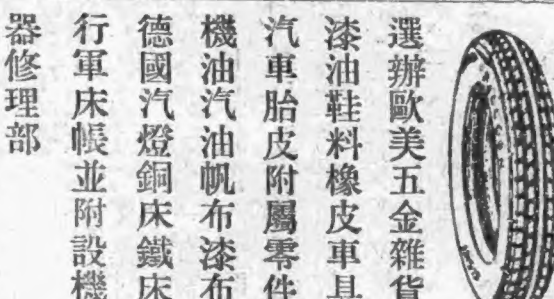 選辦歐美五金雜貨
漆油鞋料橡皮車具
汽車胎皮附屬零件
機油汽油帆布漆布
德國汽燈銅床鐵床
行軍床帳並附設機
器修理部